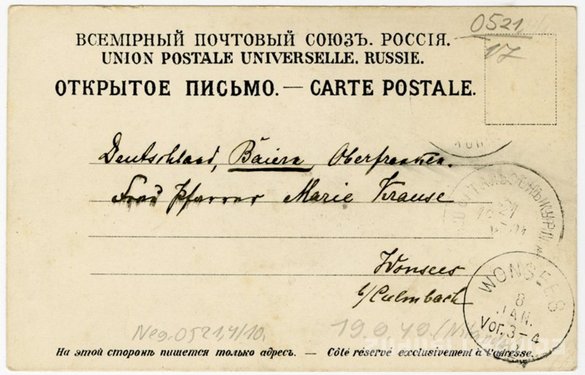 0521
17
ВСЕМІРНЫЙ ПОЧТОВЫЙ СОЮЗЪ. РОССІЯ.
UNION POSTALE UNIVERSELLE. RUSSIE.
ОТКРЫТОЕ ПИСЬМО. — CARTE POSTALE.
Deutschland, Baiern, Oberfranken.
Frau Pfarrer Marie Krause
Wonsees
b/Culmbach
WONSEES
8
JAN.
Vor. 3-4
Neg. 0521,4/10,
На этой сторонѣ пишется только адресъ. — Côté réservé exclusivement à l'adresse.